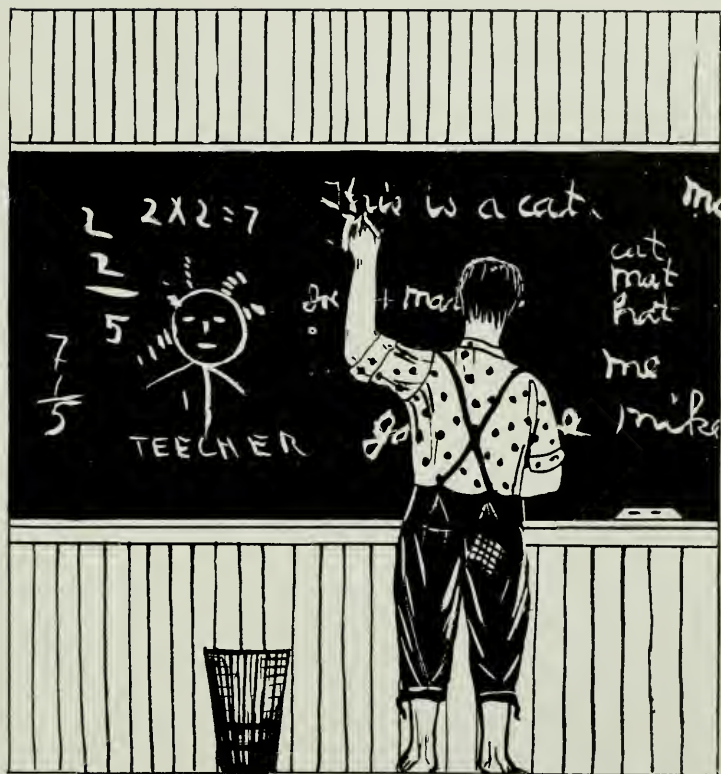 2
2
5
2 X 2 = 7
7
1
5
TEECHER
This is a cat.
cat
mat
hat
me
mike